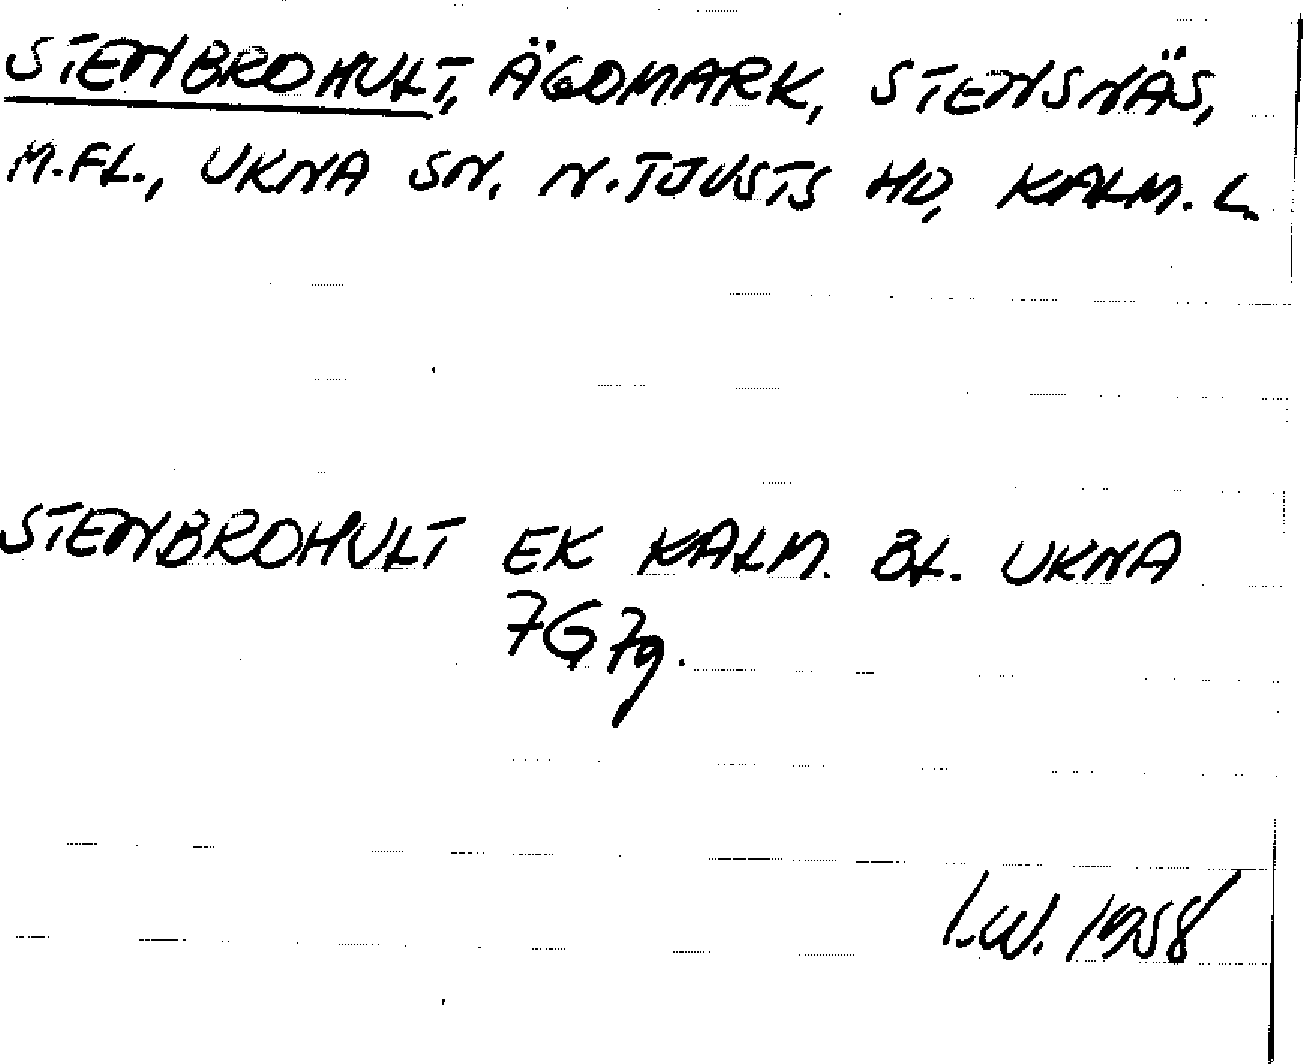 STENBROHULT, ÄGOMARK, STENSNÄS,
M.FL., UKNA SN. N. TJUSTS HD, KALM. L.
STENBROHULT EK KALM. BL. UKNA
7G7g.
I.W. 1958